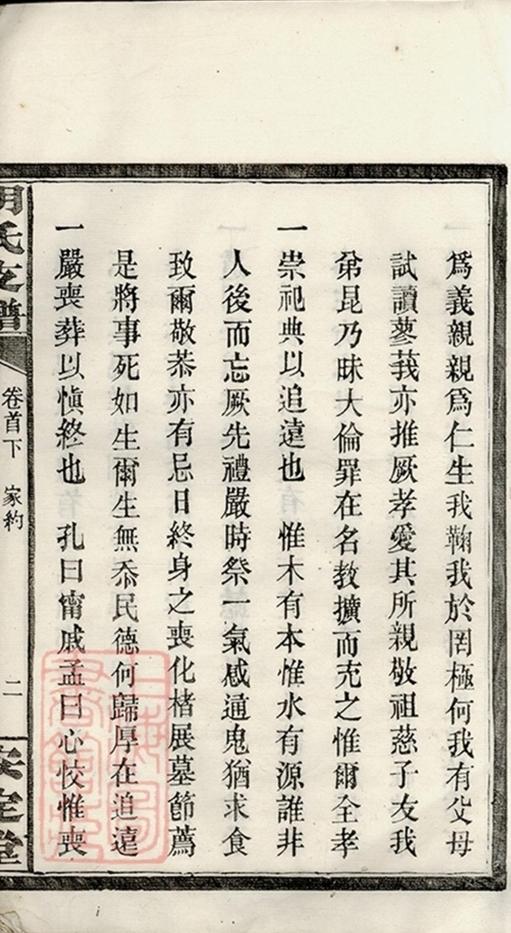 爲義親親爲仁生我鞠我於罔極何我有父母
試讀蓼莪亦推厥孝愛其所親敬祖慈子友我
弟昆乃昧大倫罪在名教擴而充之惟爾全孝
一崇祀典以追遠也　惟木有本惟水有源誰非
人後而忘厥先禮嚴時祭一氣感通鬼猶求食
致爾敬恭亦有忌日終身之喪化楮展墓節薦
是將事死如生爾生無忝民德何歸厚在追遠
一嚴喪葬以愼終也　孔曰甯戚孟曰心恔惟喪
胡氏支譜
卷首下　家約
二
安定堂